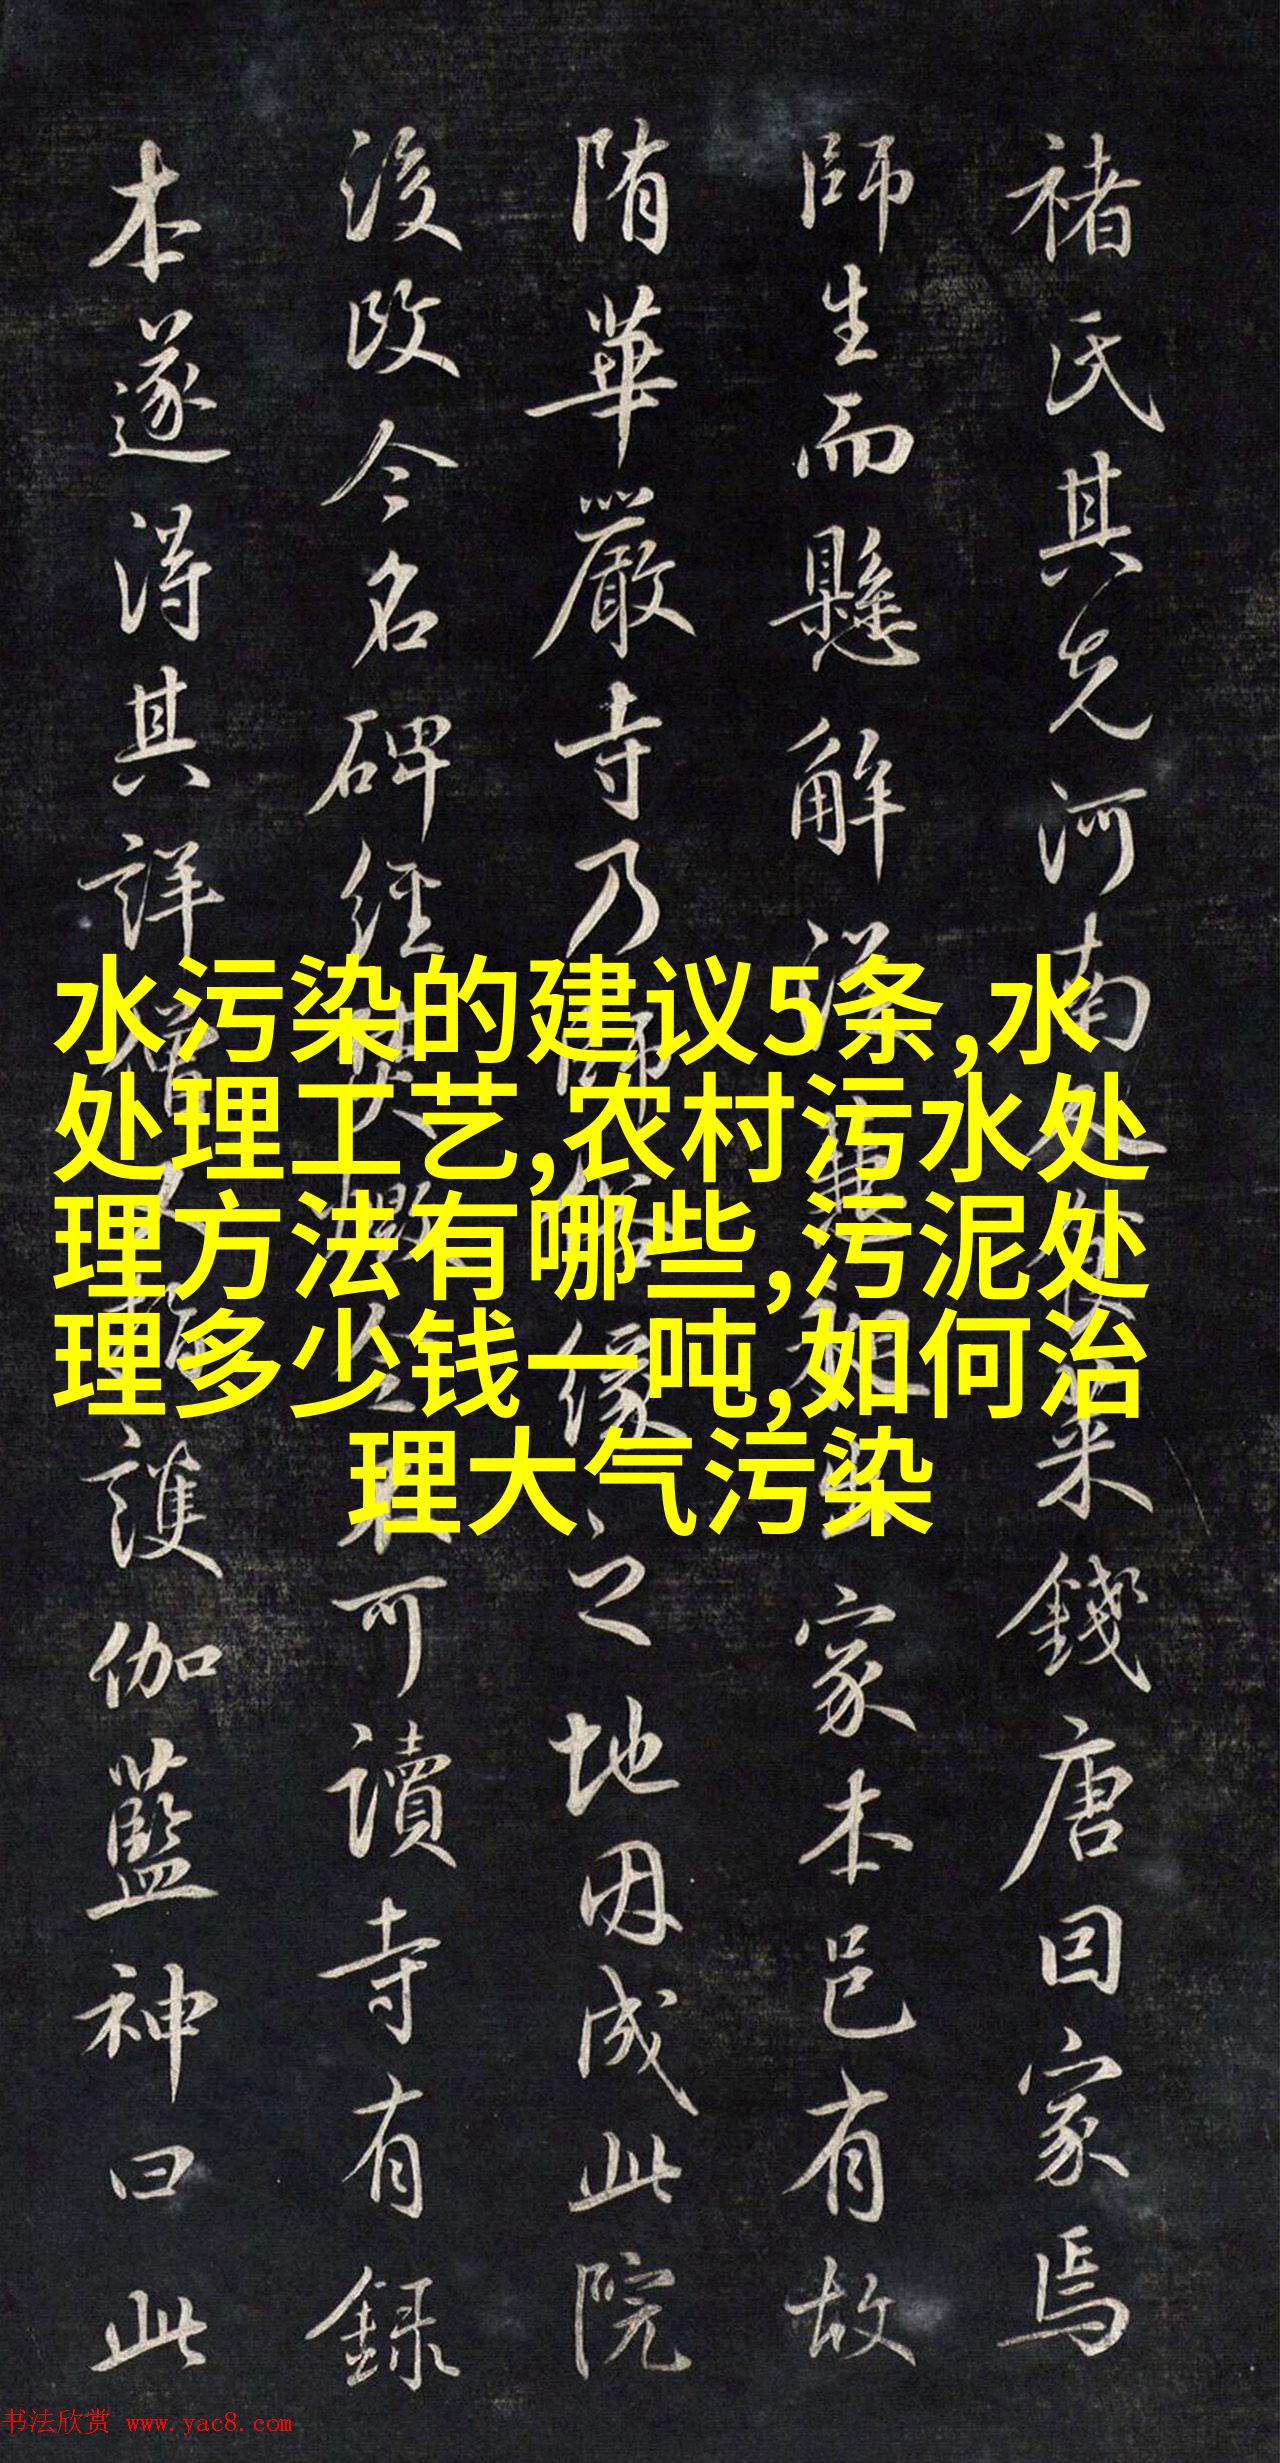 褚氏其先河南錢唐因家焉
師生而懸解家本邑有故
隋華嚴寺乃緣之地因成此院
後改今名碑經可讀寺有錄
本遂得其詳僧護伽藍神曰此
水污染的建议5条,水
处理工艺,农村污水处
理方法有哪些,污泥处
理多少钱一吨,如何治
理大气污染
书法欣赏 www.yac8.com